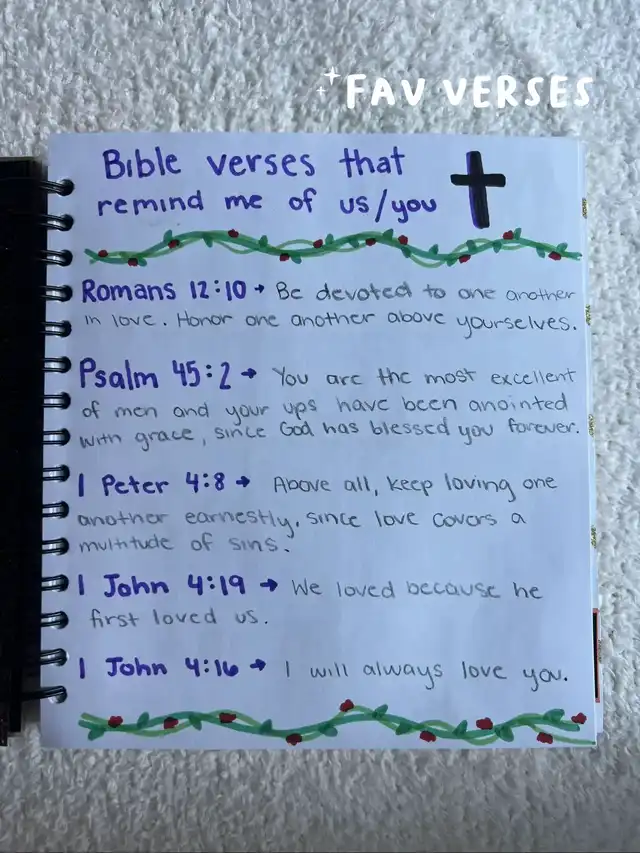 FAV VERSES
Bible verses that
remind me of us/you
Romans 12:10 → Be devoted to one another
in love. Honor one another above yourselves.
Psalm 45:2 → You are the most excellent
of men and your ups have been anointed
with grace, since God has blessed you forever.
1 Peter 4:8 → Above all, keep loving one
another earnestly, since love covers a
multitude of sins.
1 John 4:19 → We loved because he
first loved us.
1 John 4:16 → I will always love you.